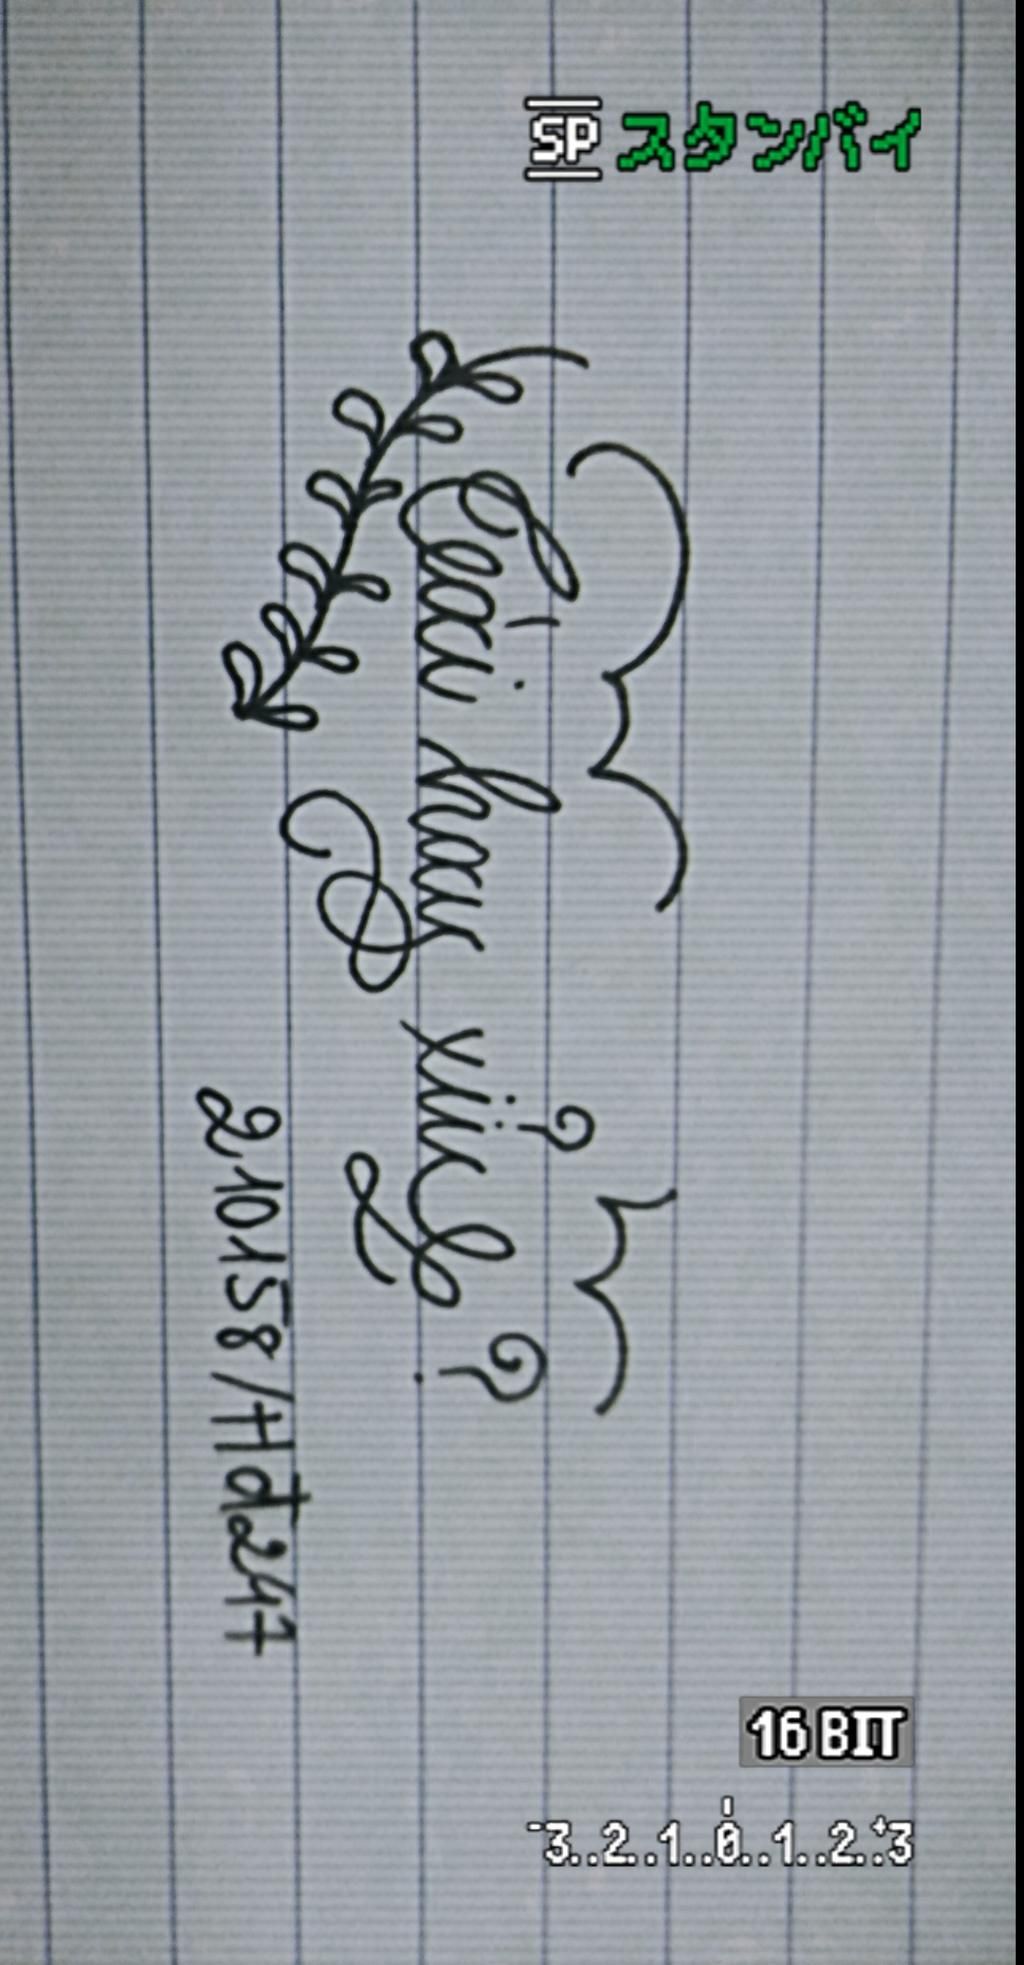 SP スタンバイ
Cái hau xỉu?
210158/Hđ247
16 BIT
-3..2..1..0..1..2..+3